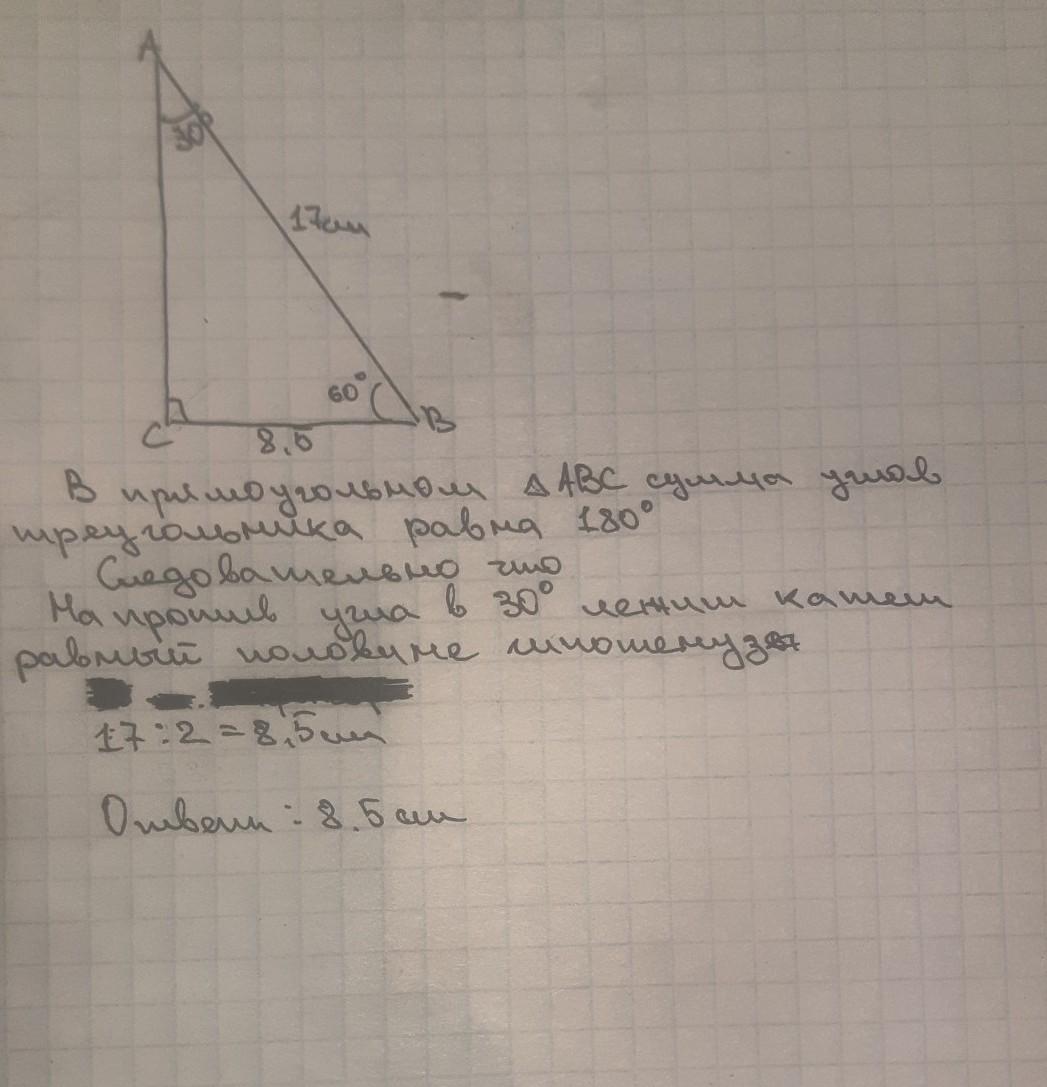 A
30°
17см
60°
C
B
8,5
В прямоугольном △ABC сумма углов
треугольника равна 180°
Следовательно что
На против угла в 30° лежит катет
равный половине гипотенуз
17:2=8,5см
Ответ: 8.5см